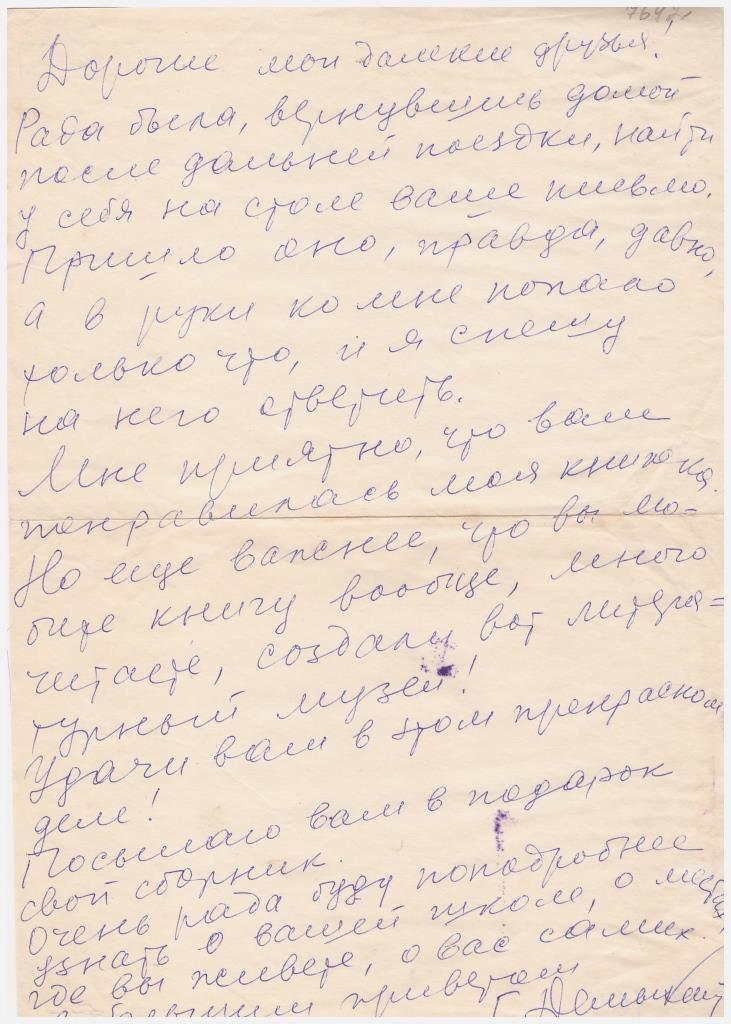 7647
Дорогие мои далекие друзья.
Рада была, вернувшись домой
после дальней поездки, найти
у себя на столе ваше письмо.
Пришло оно, правда, давно,
а в руки ко мне попало
только что, и я спешу
на него ответить.
Мне приятно, что вам
понравилась моя книжка.
Но еще важнее, что вы лю-
бите книгу вообще, много
читаете, создали вот литера-
турный музей!
Удачи вам в этом прекрасном
деле!
Посылаю вам в подарок
свой сборник.
Очень рада буду поподробнее
узнать о вашей школе, о местах,
где вы живете, о вас самих.
С большим приветом
Г. Демыкина